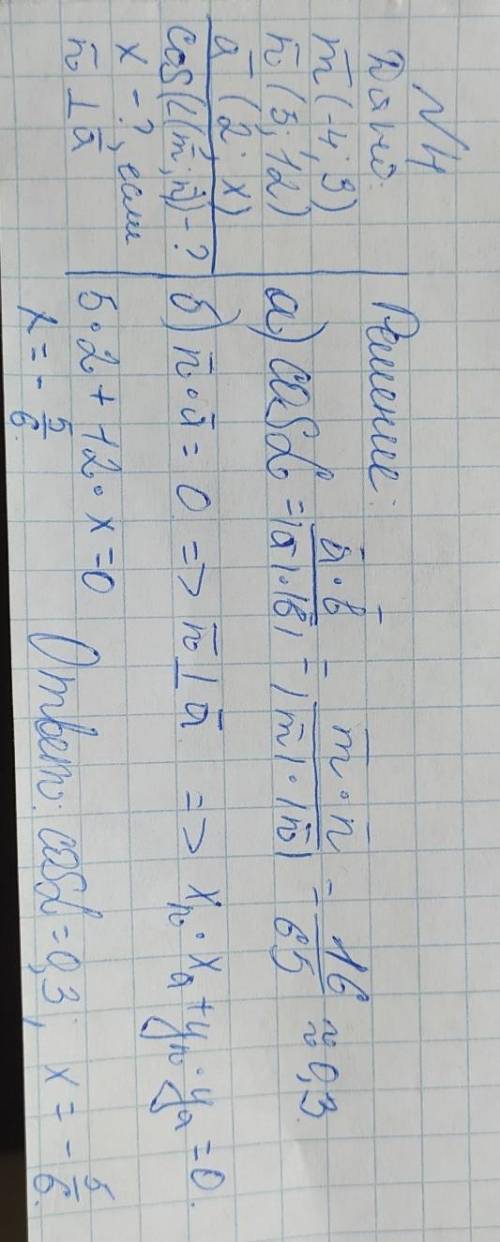 N4
Дано:
m̄ (-4; 3)
n̄ (5; 12)
ā (2; x)
cos(∠(m̄; n̄)) - ?
x - ?, если
n̄ ⊥ ā
Решение:
а) cosα = ā·b̄ / |ā|·|b̄| = m̄·n̄ / |m̄|·|n̄| = 16/65 ≈ 0,3.
б) n̄·ā = 0 => n̄ ⊥ ā => xₙ·xₐ + yₙ·yₐ = 0.
5·2 + 12·x = 0
x = -5/6.
Ответ: cosα = 0,3; x = -5/6.